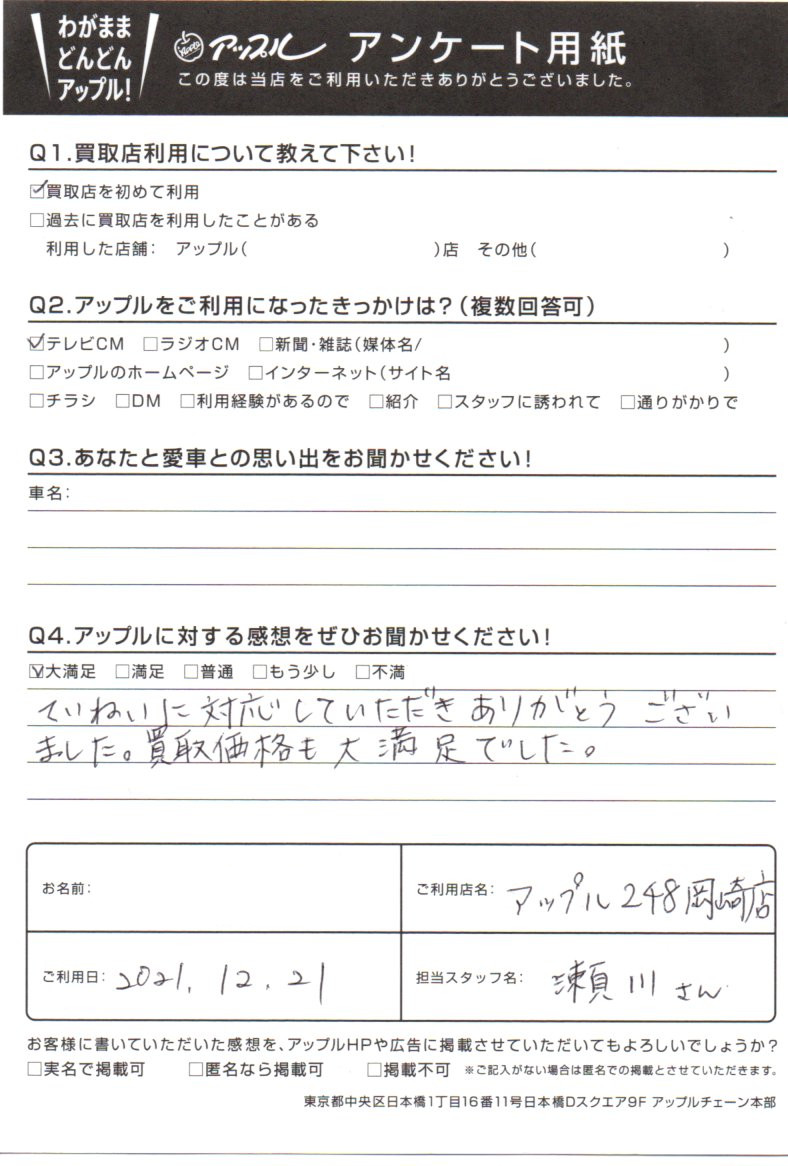 わがまま
どんどん
アップル!
アップル アンケート用紙
この度は当店をご利用いただきありがとうございました。
Q1.買取店利用について教えて下さい!
☑買取店を初めて利用
□過去に買取店を利用したことがある
利用した店舗: アップル( )店 その他( )
Q2.アップルをご利用になったきっかけは?(複数回答可)
☑テレビCM □ラジオCM □新聞・雑誌(媒体名/ )
□アップルのホームページ □インターネット(サイト名 )
□チラシ □DM □利用経験があるので □紹介 □スタッフに誘われて □通りがかりで
Q3.あなたと愛車との思い出をお聞かせください!
車名:
Q4.アップルに対する感想をぜひお聞かせください!
☑大満足 □満足 □普通 □もう少し □不満
ていねいに対応していただきありがとうござい
ました。買取価格も大満足でした。
お名前:
ご利用店名: アップル248岡崎店
ご利用日: 2021.12.21
担当スタッフ名: 瀬川さん
お客様に書いていただいた感想を、アップルHPや広告に掲載させていただいてもよろしいでしょうか?
□実名で掲載可 □匿名なら掲載可 □掲載不可 ※ご記入がない場合は匿名での掲載とさせていただきます。
東京都中央区日本橋1丁目16番11号日本橋Dスクエア9F アップルチェーン本部